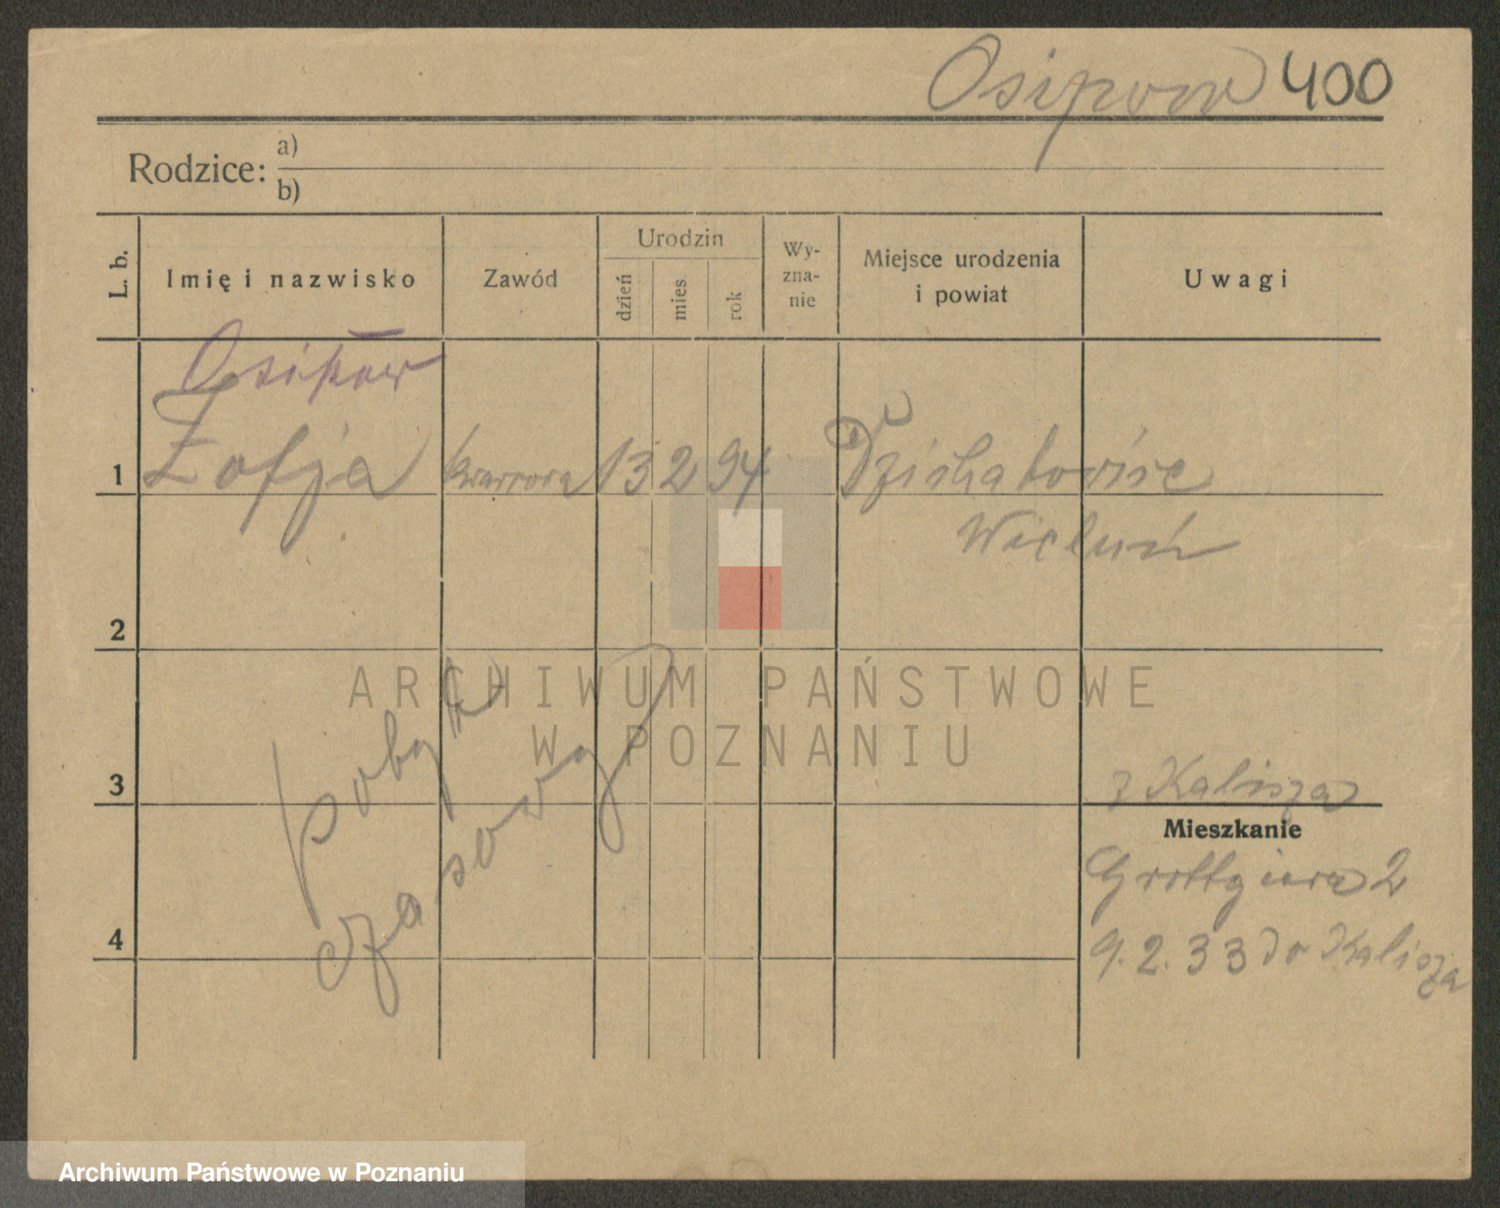 Osipow 400
Rodzice: a)
b)
L. b.
Imię i nazwisko
Zawód
Urodzin
dzień
mies.
rok
Wy-
zna-
nie
Miejsce urodzenia
i powiat
Uwagi
Osipow
1 Zofja 13 2 94
Wieluń
2
pobyt
czasowy
3
z Kalisza
Mieszkanie
Grottgiera 2
4
9. 2. 33 do Kalisza
ARCHIWUM PAŃSTWOWE
W POZNANIU
Archiwum Państwowe w Poznaniu